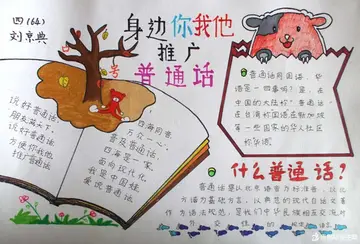 四(64)
刘京典
身边你我他
推广
普通话
说好普通话,
朋友满天下。
说好普通话,
方便你我他
推广普通话
四海同音,
万众一心。
普及普通话,
四海是一家。
面向现代化
我是中国娃,
爱说普通话
普通话同国语、华
语是一回事吗?是,在
中国的大陆称"普通话",
什么普通话?
普通话是以北京语音为标准音,以北
方话为基础方言,以典范的现代白话文著
作为语法规范,是我们中华民族相互交流对